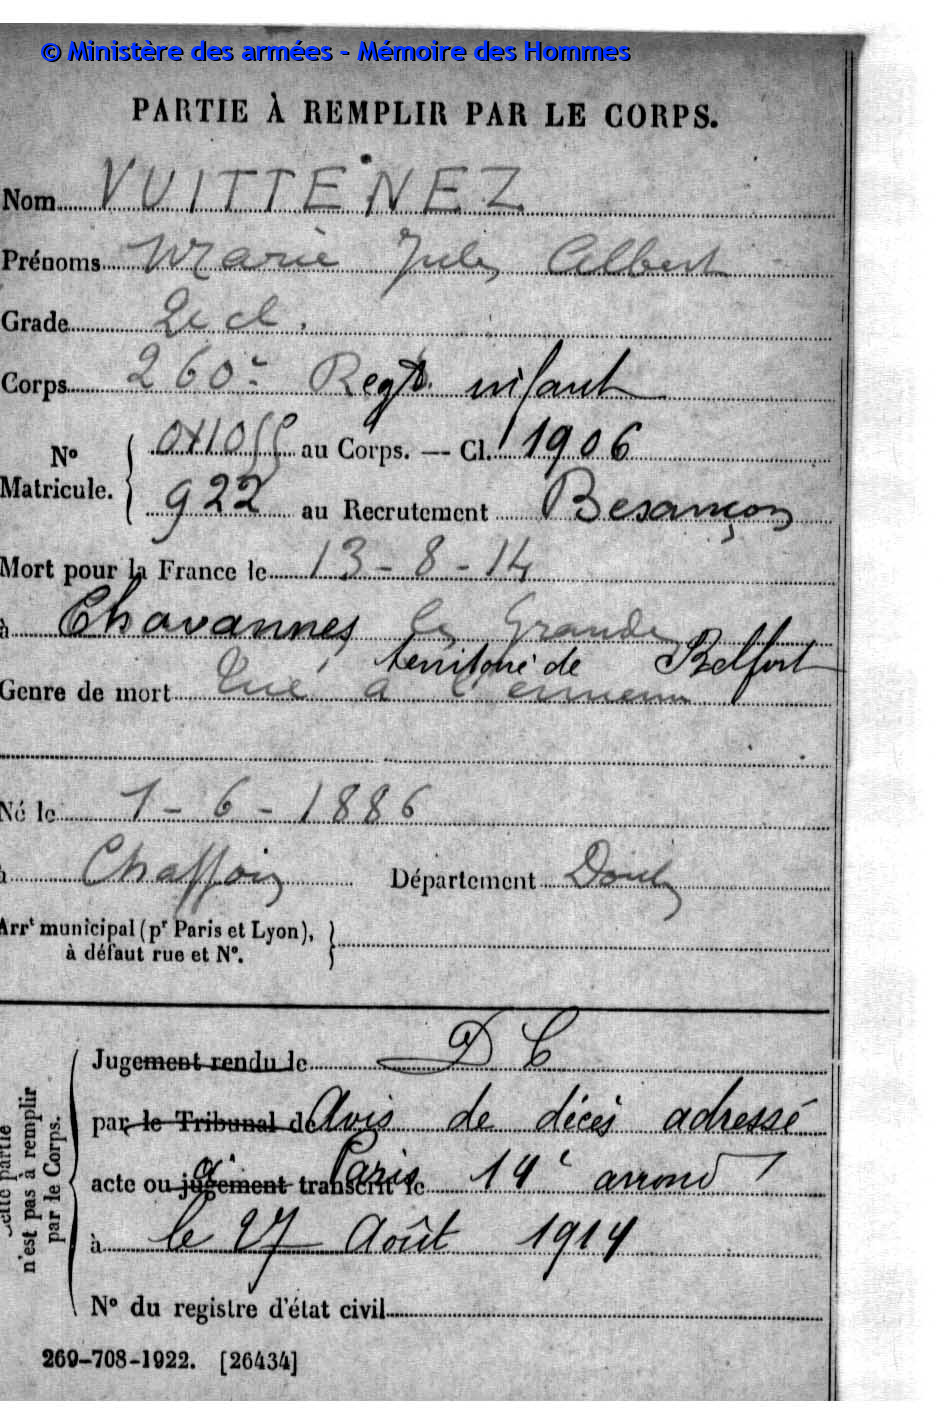 © Ministère des armées - Mémoire des Hommes
PARTIE À REMPLIR PAR LE CORPS.
Nom VUITTENEZ
Prénoms Marie Jules Albert
Grade 2e cl.
Corps 260e Regt. infant
No Matricule. au Corps. — Cl. 1906
922 au Recrutement Besançon
Mort pour la France le 13-8-14
à Chavannes les Grandes
territoire de Belfort
Genre de mort Tué à l'ennemi
Né le 1-6-1886
à Chaffois Département Doubs
Arrt municipal (pr Paris et Lyon),
à défaut rue et No.
Cette partie
n'est pas à remplir
par le Corps.
Jugement rendu le D C
par le Tribunal de Avis de décès adressé
acte ou jugement transcrit le à Paris 14e arrond
à le 27 Août 1914
No du registre d'état civil
269-708-1922. [26434]